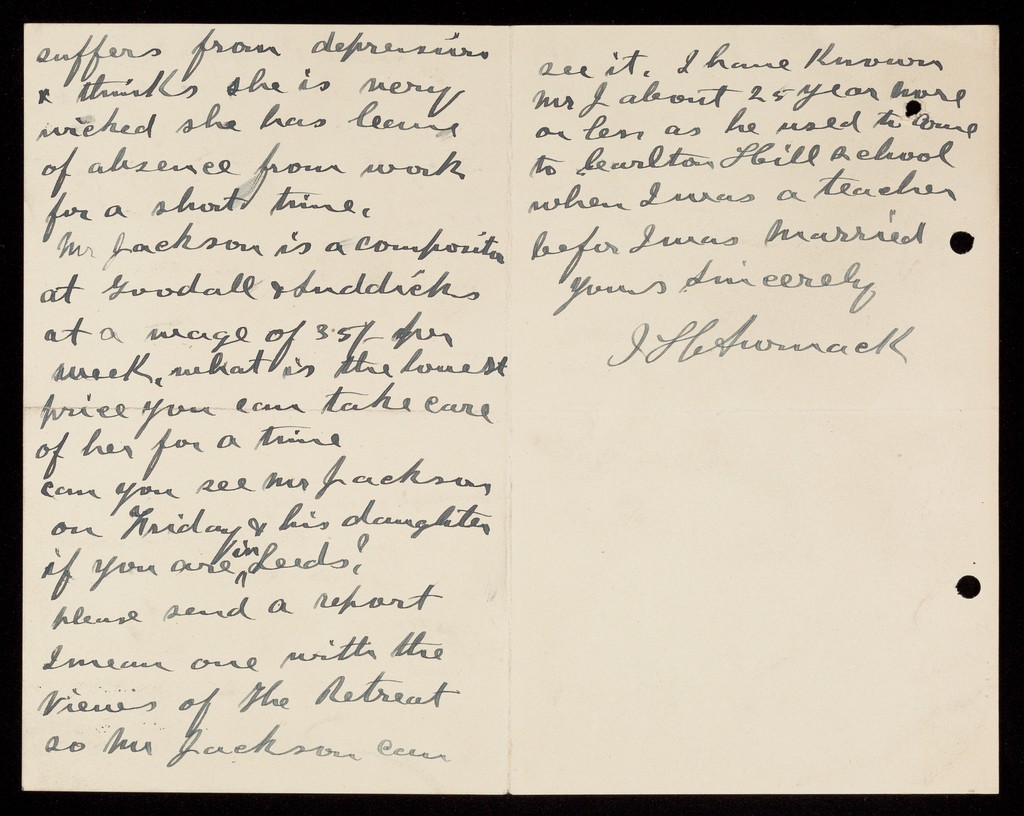 suffers from depression
& thinks she is very
wicked she has leave
of absence from work
for a short time.
Mr Jackson is a compositor
at Goodall & Suddicks
at a wage of 35/- per
week, what is the lowest
price you can take care
of her for a time
can you see Mr Jackson
on Friday & his daughter
if you are in Leeds?
please send a report
I mean one with the
Views of The Retreat
so Mr Jackson can
see it. I have Known
Mr J about 25 year more
or less as he used to come
to Carlton Hill School
when I was a teacher
befor I was Married
Yours Sincerely